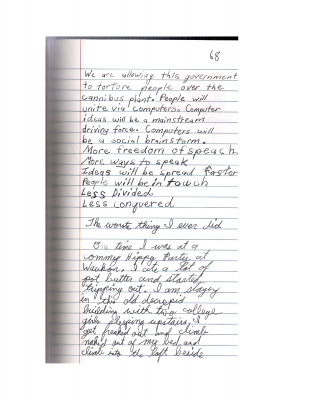 68
We are allowing this government
to torture people over the
cannibus plant. People will
unite via computers. Computer
ideas will be a mainstream
driving force. Computers will
be a social brainstorm.
More freedom of speach
More ways to speak
Ideas will be spread faster
People will be in touch
Less Divided
Less conquered
The worste thing I ever did
One time I was at a
commy Hippy Party at
Waukon, I ate a lot of
pot butter and started
tripping out. I am staying
in this old decrepid
building with two college
girls sleeping upstairs. I
get freaked out and climb
naked out of my bed and
climb into the loft beside